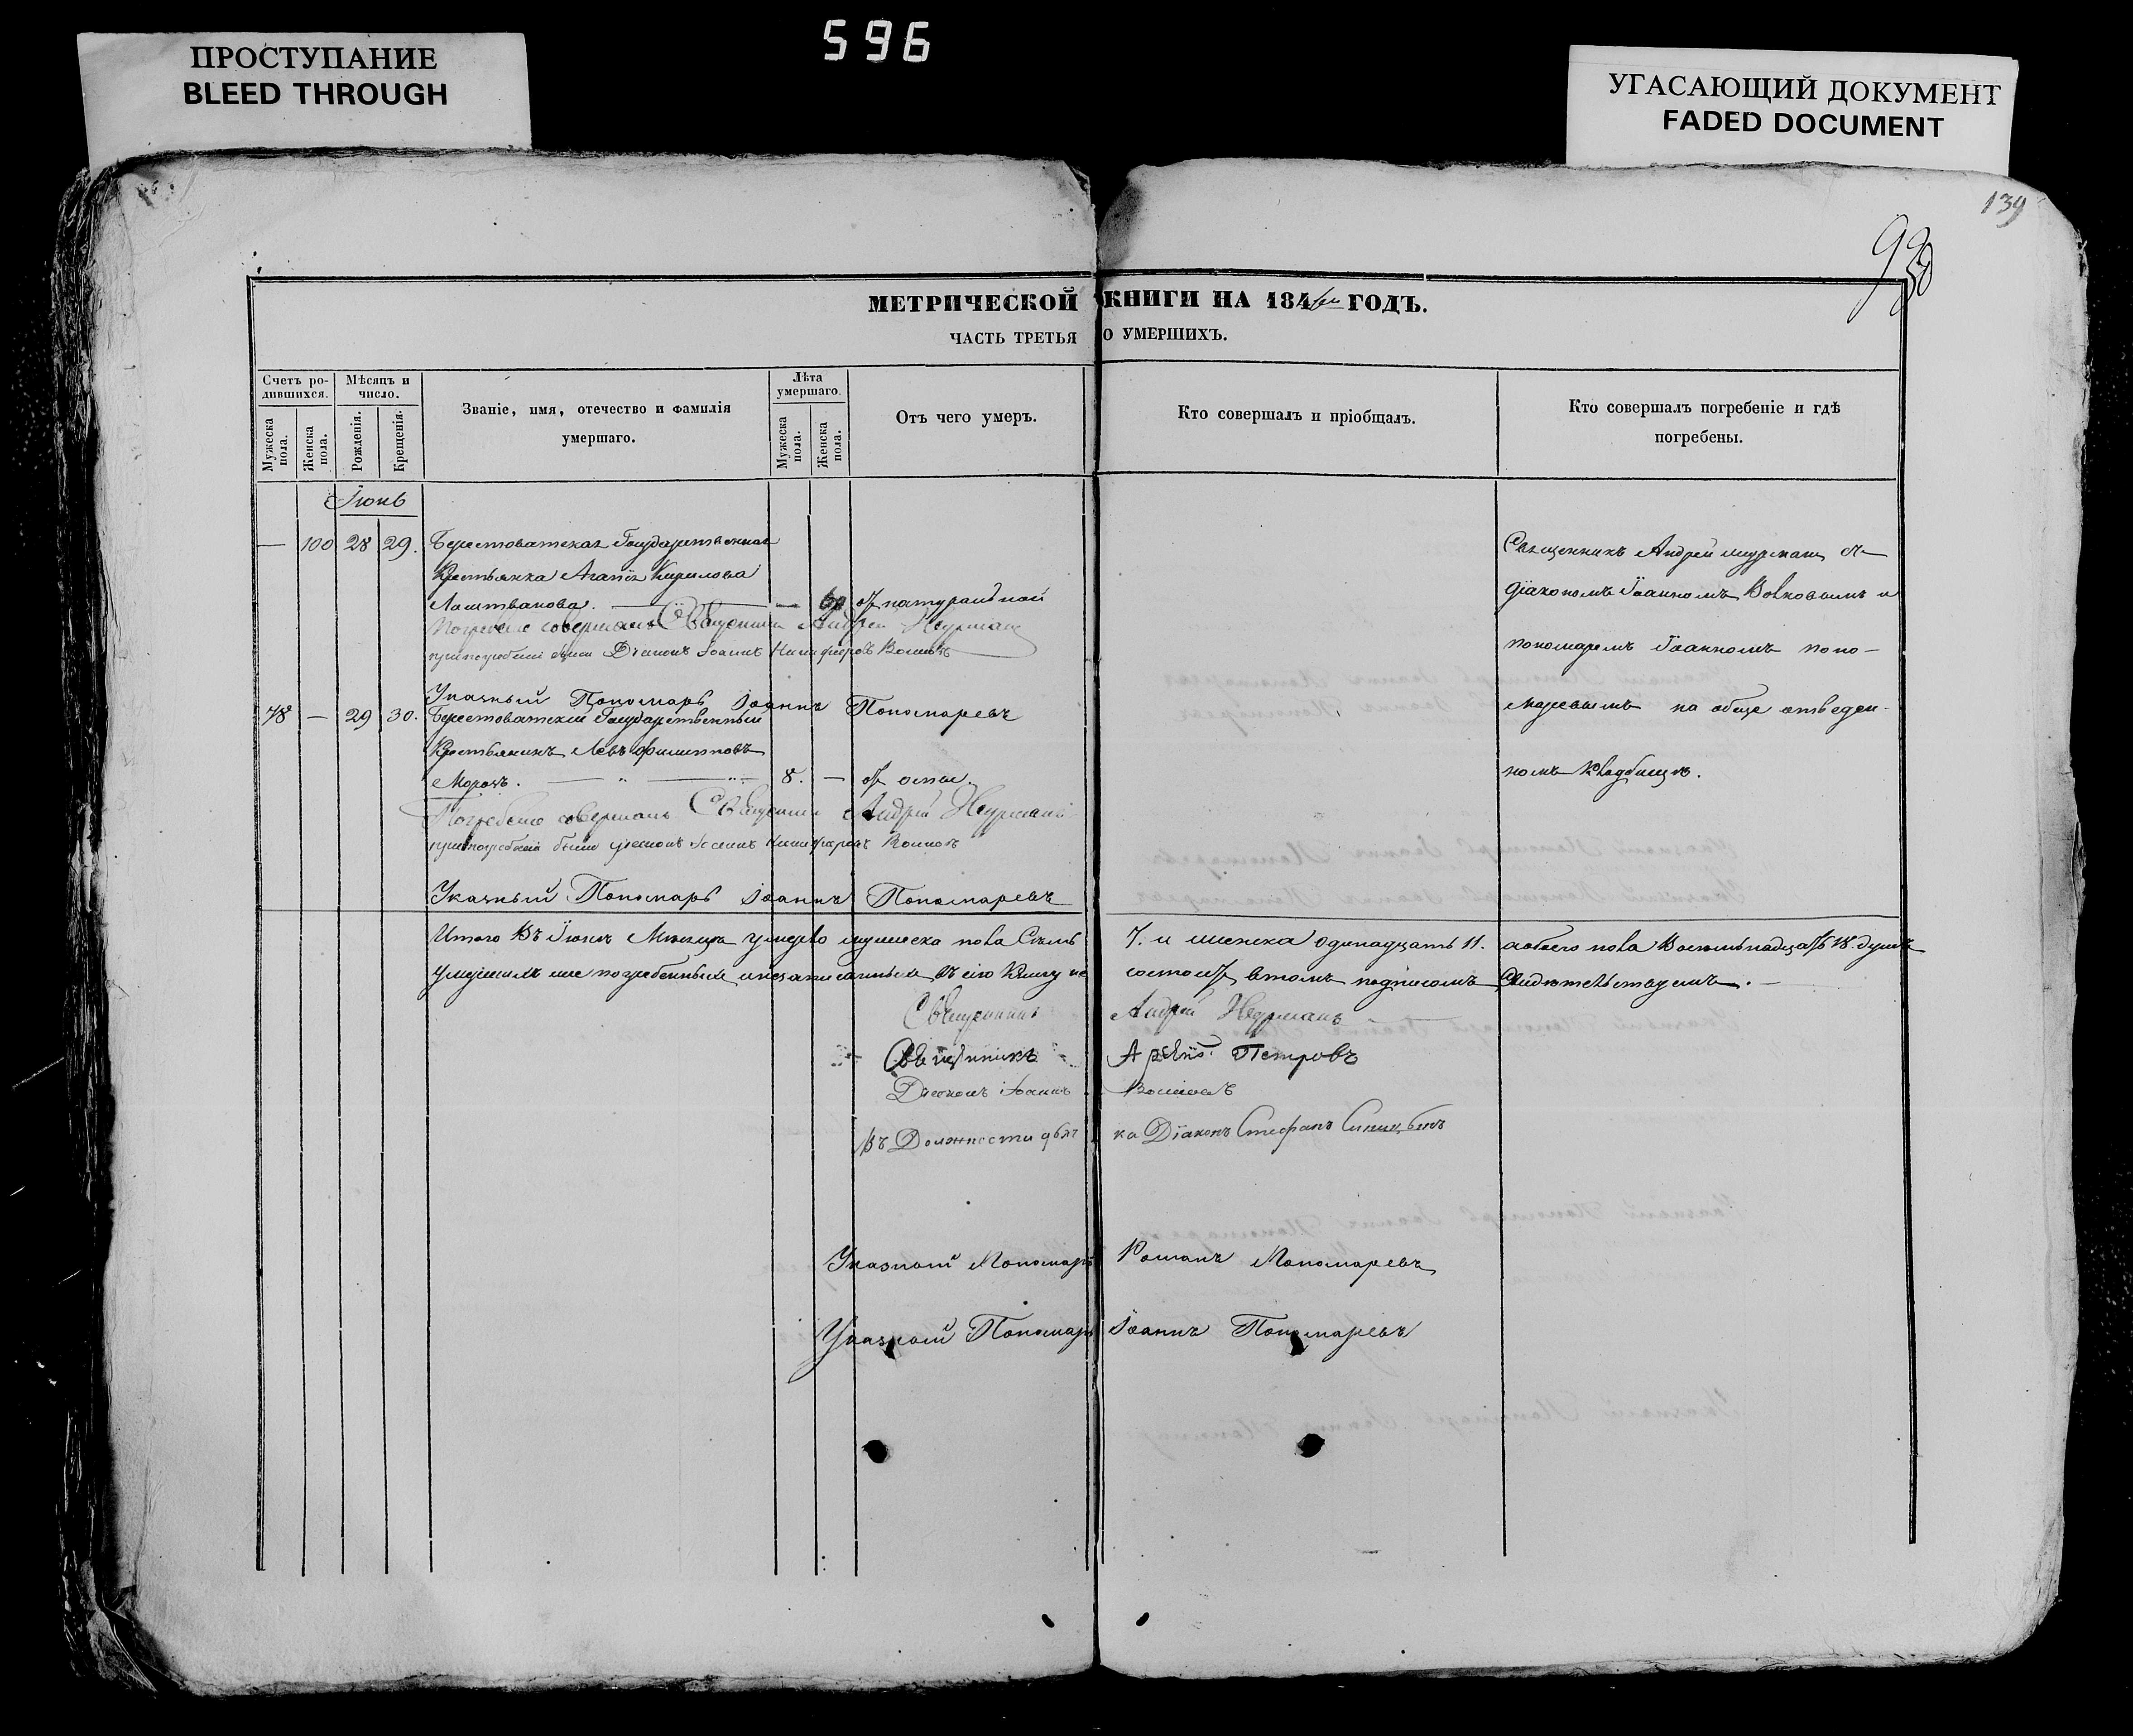 596
ПРОСТУПАНИЕ
BLEED THROUGH
УГАСАЮЩИЙ ДОКУМЕНТ
FADED DOCUMENT
139
МЕТРИЧЕСКОЙ КНИГИ НА 184 ГОДЪ.
ЧАСТЬ ТРЕТЬЯ О УМЕРШИХЪ.
Счетъ родившихся.
Мужеска пола.
Женска пола.
Мѣсяцъ и число.
Рожденія.
Крещенія.
Званіе, имя, отечество и фамилія
умершаго.
Лѣта умершаго.
Мужеска пола.
Женска пола.
Отъ чего умеръ.
Кто совершалъ и пріобщалъ.
Кто совершалъ погребеніе и гдѣ
погребены.
Іюнь
— 100 28 29. Берестоватская Государственная
Крестьянка Агапія Кирилова
— от натуральной
Погребение совершалъ Священникъ Андрей
при погребеніи были Діаконъ Іоаннъ Никифоровъ
Указный Пономарь Іоаннъ Пономаревъ
Священникъ Андрей съ
діакономъ Іоанномъ и
пономаремъ Іоанномъ Поно-
маревымъ на обще отведен-
номъ кладбищѣ.
78 — 29 30. Берестоватскій Государственный
Крестьянинъ Левъ Филипповъ
Морозъ. 8. — от оспы.
Погребение совершалъ Священникъ Андрей
при погребеніи были Діаконъ Іоаннъ Никифоровъ
Указный Пономарь Іоаннъ Пономаревъ
Итого Въ Іюнѣ Мѣсяцѣ умерло мужеска пола Семь 7. и женска одинадцать 11. а обоего пола Восемьнадцать 18. душъ
умершихъ же погребенныхъ и незаписанныхъ въ сію Книгу не состоит въ томъ подписомъ Свидѣтельствуемъ.
Священникъ Андрей
Священникъ Петровъ
Діаконъ Іоаннъ
Въ Должности дьячка Діаконъ Стефанъ
Указный Пономарь Романъ Пономаревъ
Указный Пономарь Іоаннъ Пономаревъ